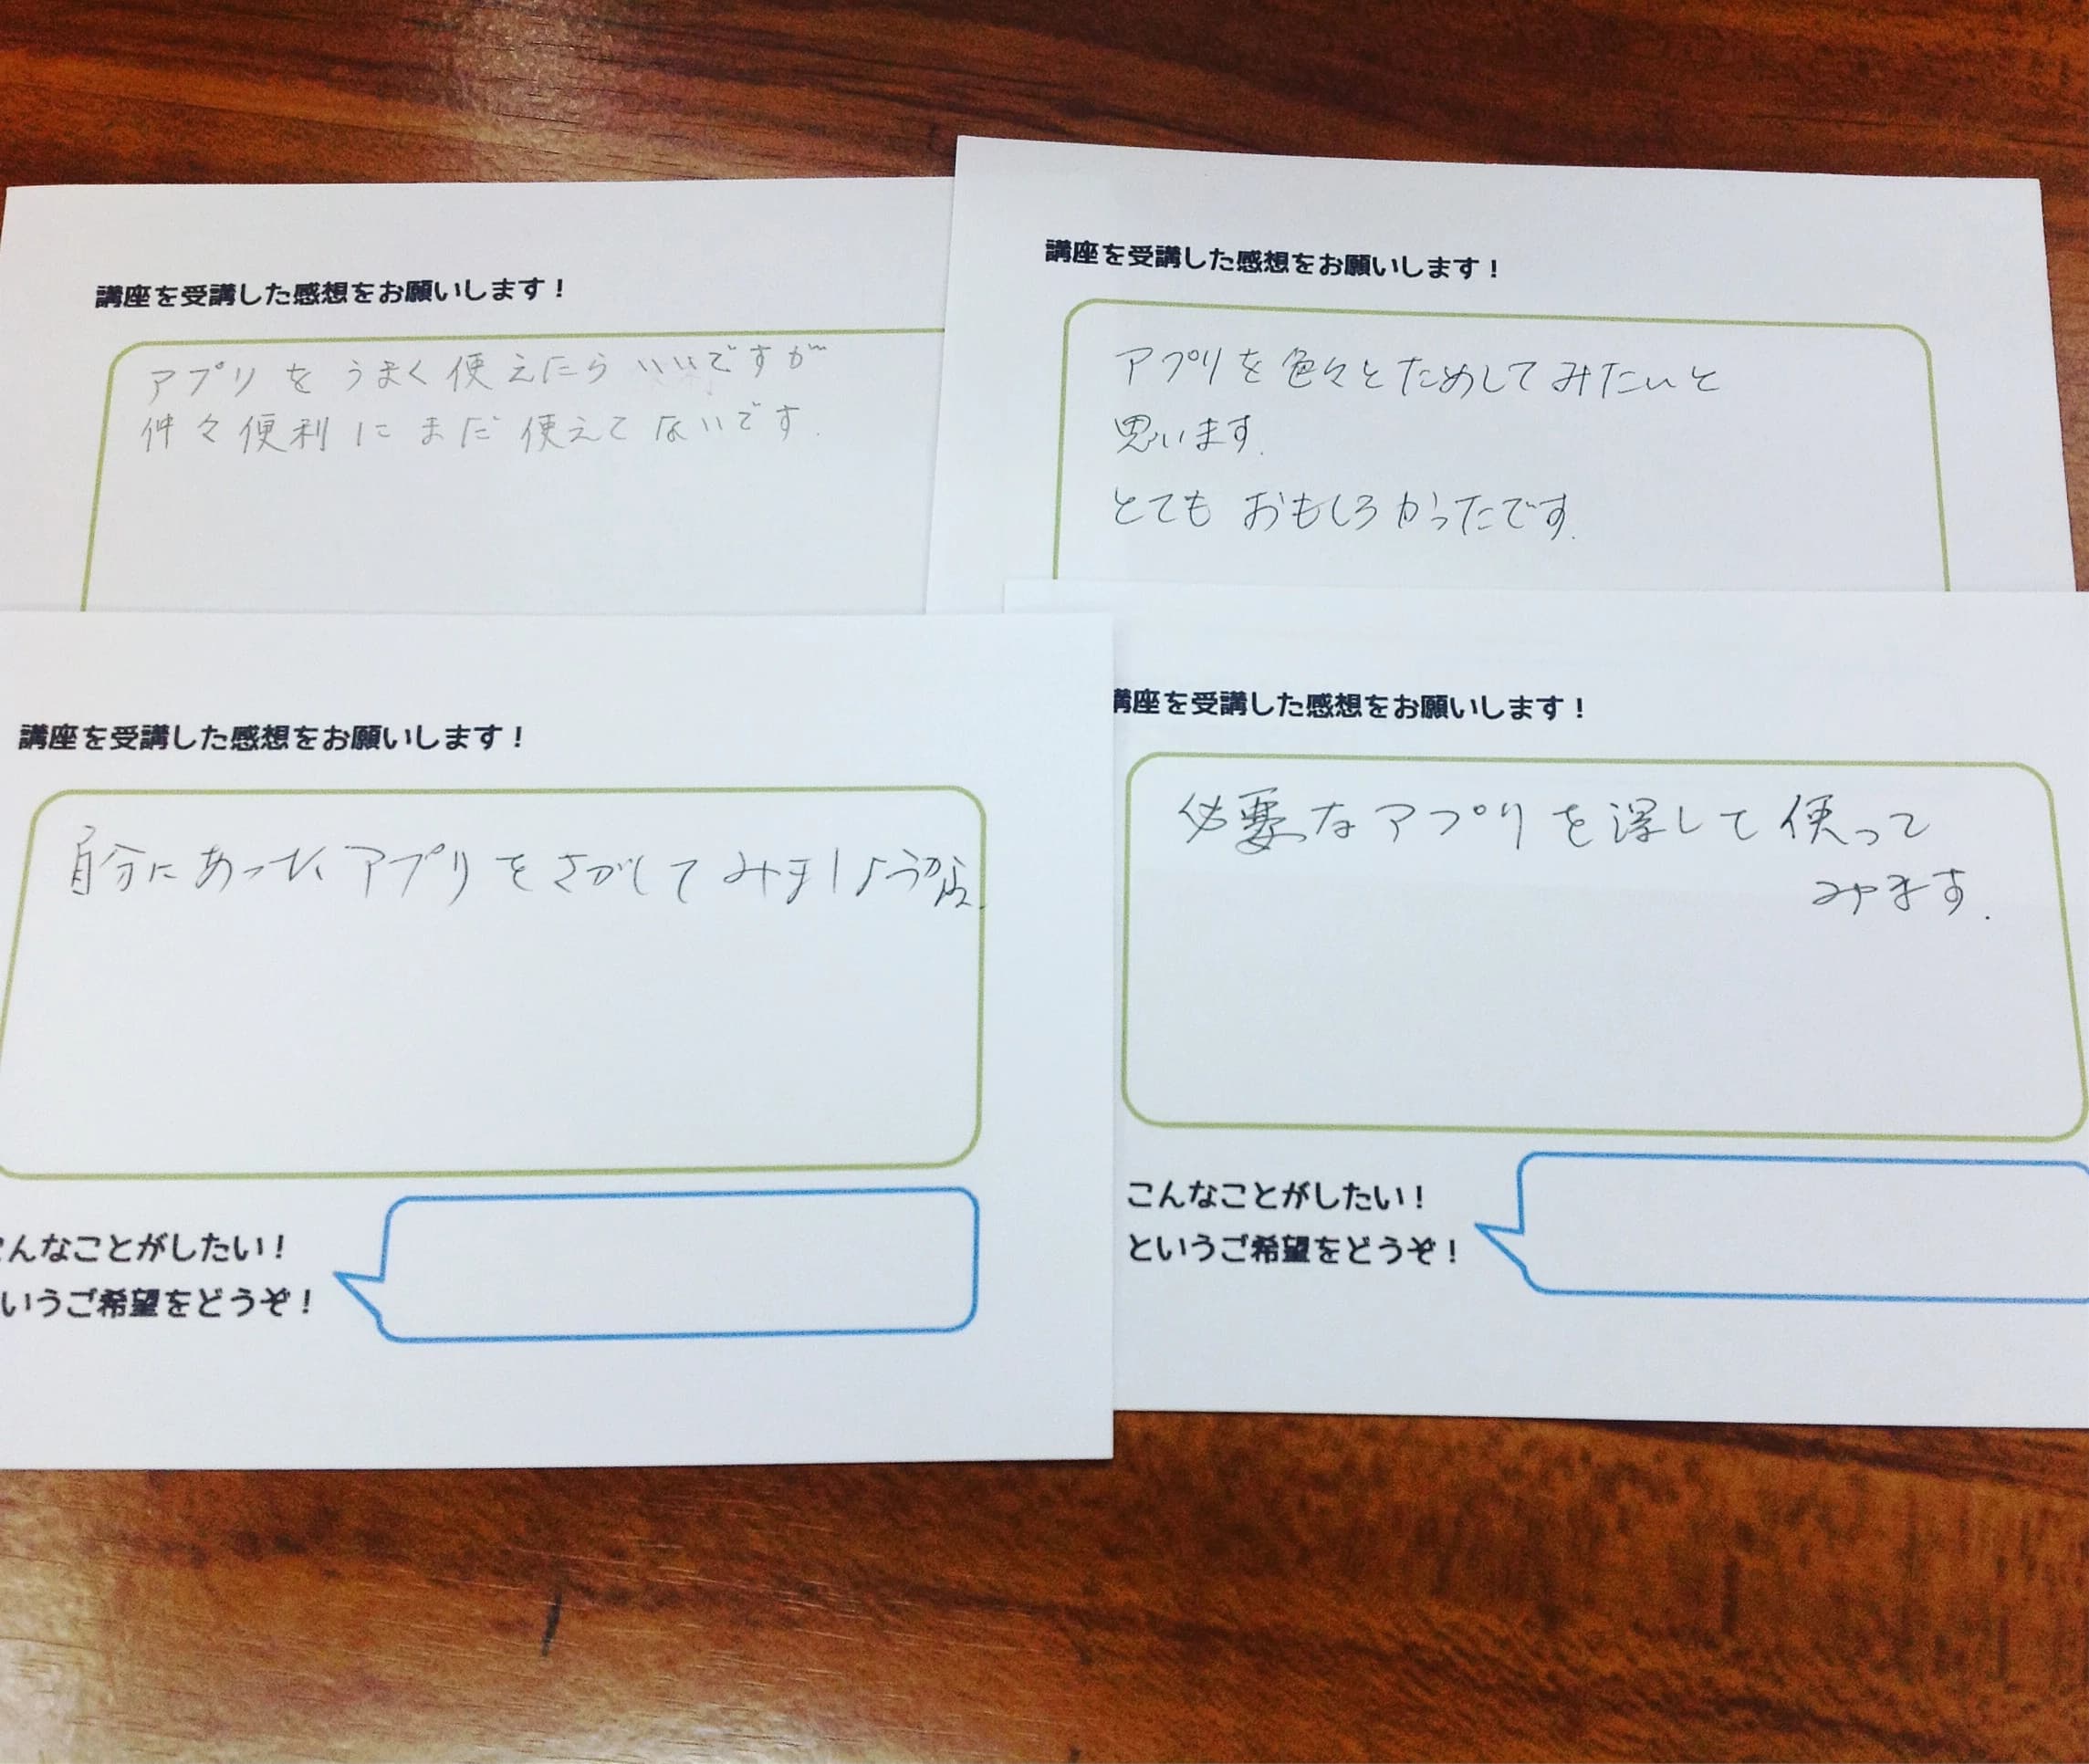 講座を受講した感想をお願いします！
アプリを うまく使えたら いいですが
仲々便利に まだ 使えて ないです.
講座を受講した感想をお願いします！
アプリを色々とためしてみたいと
思います.
とても おもしろかったです.
講座を受講した感想をお願いします！
自分にあったアプリをさがしてみましょうかな.
んなことがしたい！
いうご希望をどうぞ！
講座を受講した感想をお願いします！
必要なアプリを探して使って
みます.
こんなことがしたい！
というご希望をどうぞ！